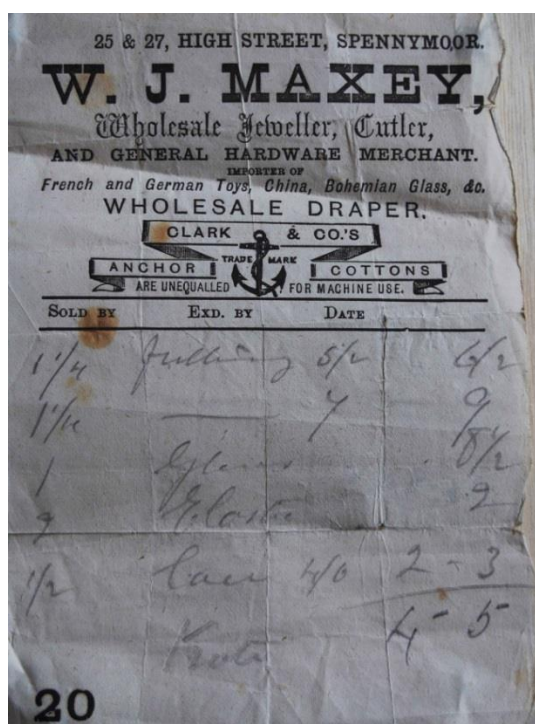 25 & 27, HIGH STREET, SPENNYMOOR.
W. J. MAXEY,
Wholesale Jeweller, Cutler,
AND GENERAL HARDWARE MERCHANT.
IMPORTER OF
French and German Toys, China, Bohemian Glass, &c.
WHOLESALE DRAPER.
CLARK & CO.'S
TRADE MARK
ANCHOR COTTONS
ARE UNEQUALLED FOR MACHINE USE.
SOLD BY EXD. BY DATE
1 1/4 5/2 6/2
1 1/4 — 7 9
1 8 1/2
2 Elastic 2
1/2 2 - 3
4 - 5
20